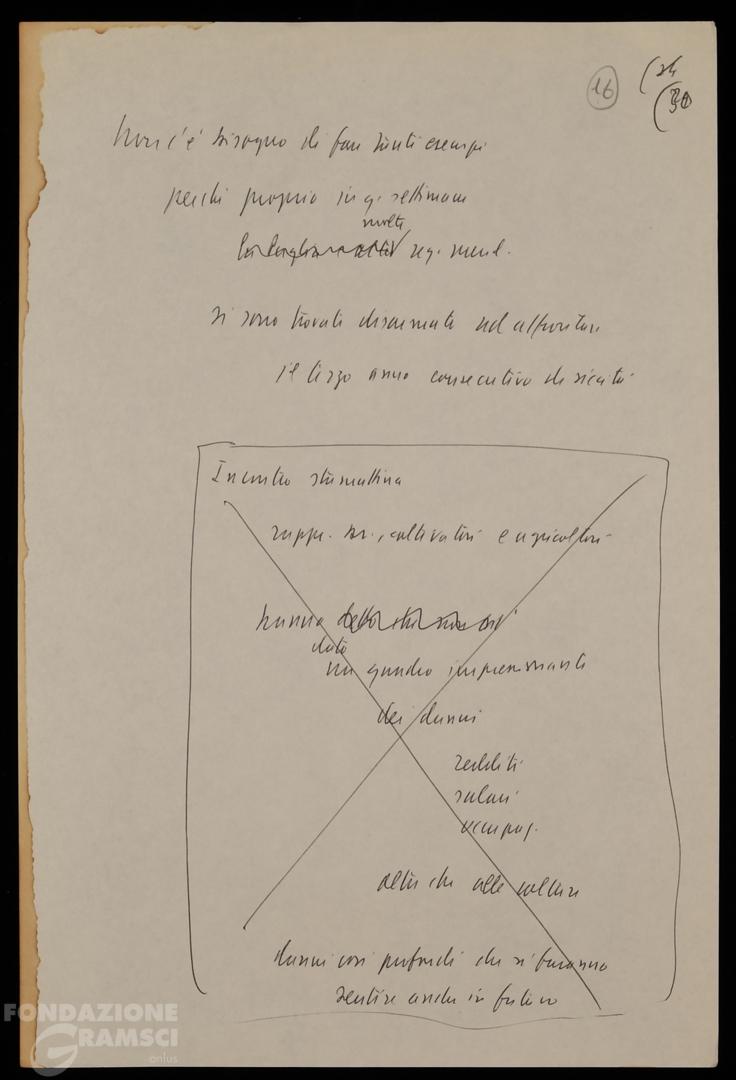 16
(24
(30
Non c'è bisogno di fare tanti esempi
perché proprio in q. settimane
molte
reg. merid.
si sono trovate disarmate ad affrontare
il terzo anno consecutivo di siccità
Incontro stamattina
rappr. coltivatori e agricoltori
hanno
dato
un quadro impressionante
dei danni
redditi
salari
occupaz.
oltre che alle colture
danni così profondi che si faranno
sentire anche in futuro
FONDAZIONE
GRAMSCI
onlus